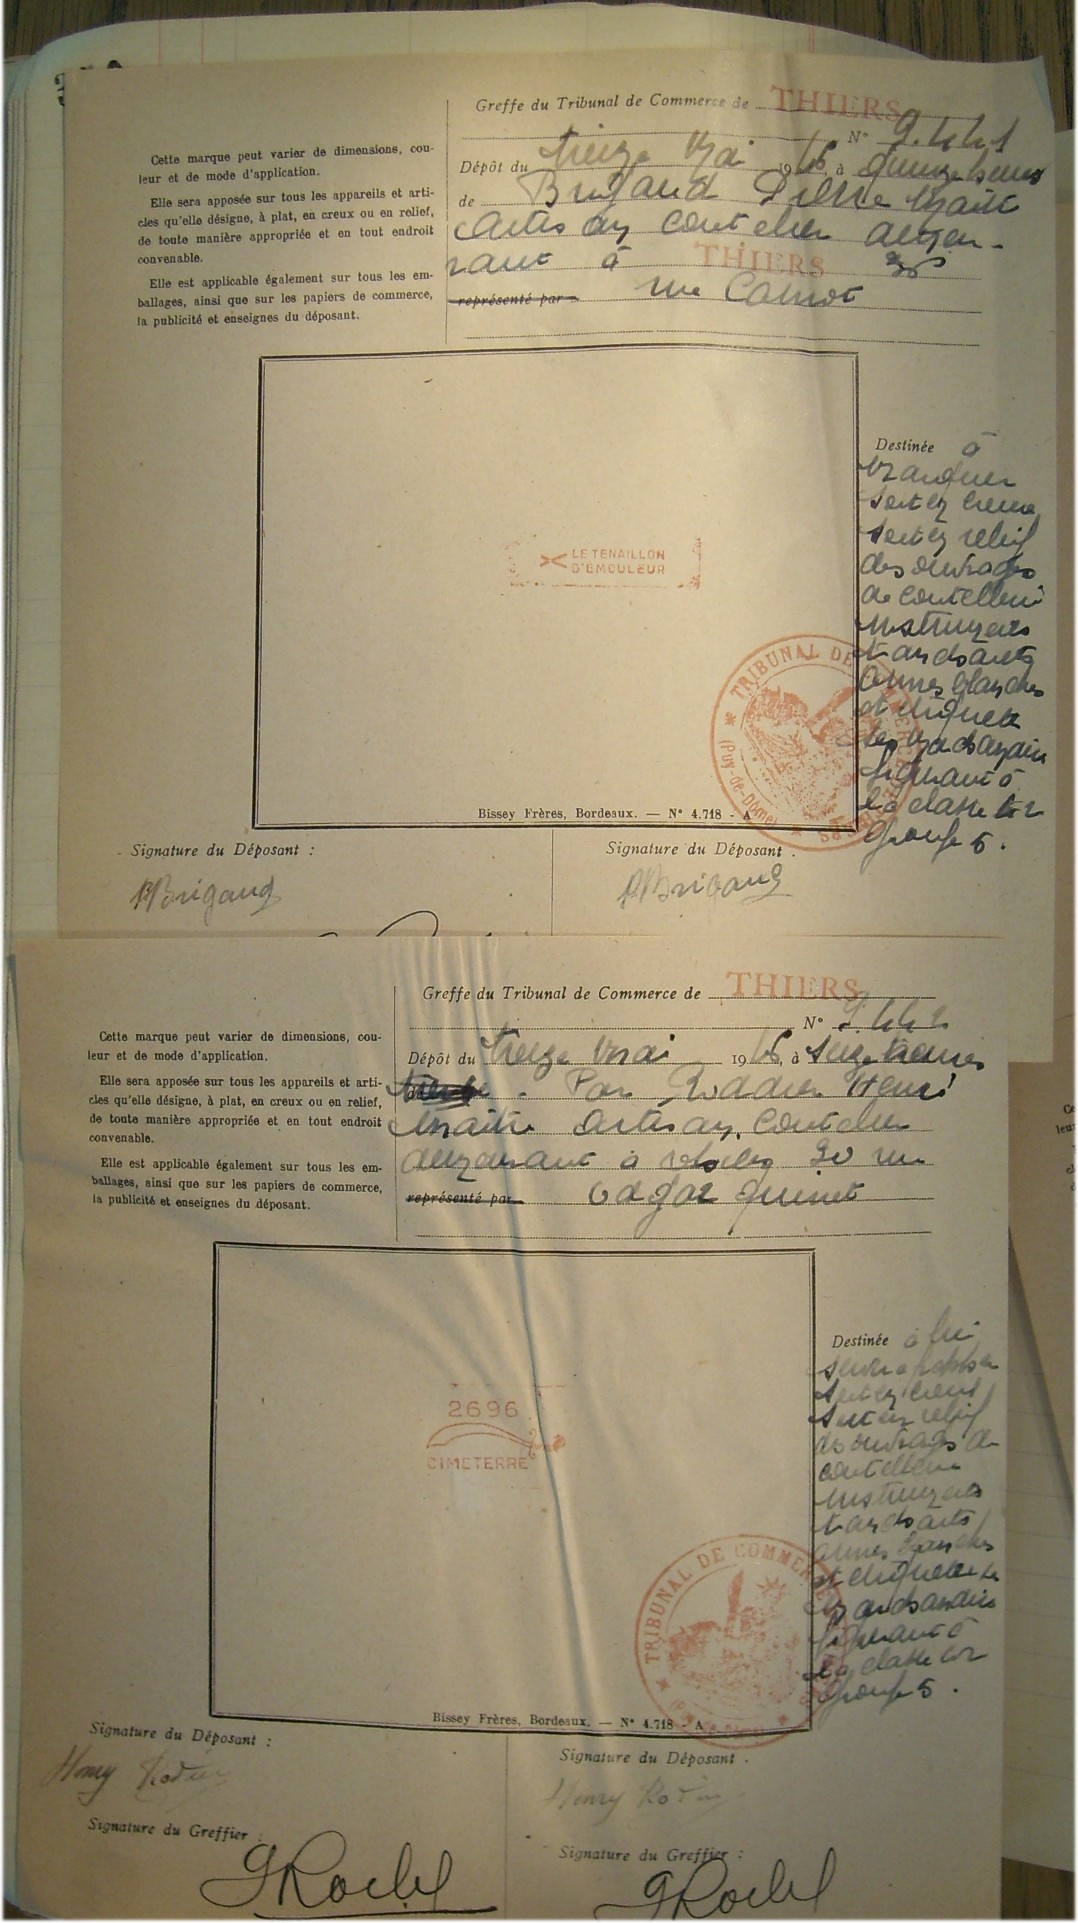 Greffe du Tribunal de Commerce de THIERS
N° 9.441
Dépôt du treize Mai 1946, à quinze heures
de Brigaud Pierre Maître
Artisan coutelier demeu-
rant à THIERS 36
représenté par rue Carnot
Cette marque peut varier de dimensions, cou-
leur et de mode d'application.
Elle sera apposée sur tous les appareils et arti-
cles qu'elle désigne, à plat, en creux ou en relief,
de toute manière appropriée et en tout endroit
convenable.
Elle est applicable également sur tous les em-
ballages, ainsi que sur les papiers de commerce,
la publicité et enseignes du déposant.
LE TENAILLON
D'EMOULEUR
Destinée à
marquer
soit en creux
soit en relief
des ouvrages
de coutellerie
instruments
tranchants
armes blanches
et étiqueter
les marchandises
figurant à
la classe
groupe 5.
TRIBUNAL DE COMMERCE
(Puy-de-Dôme)
Bissey Frères, Bordeaux. — N° 4.718 - A
Signature du Déposant :
Signature du Déposant :
PBrigaud
PBrigaud
Greffe du Tribunal de Commerce de THIERS
N° 9.442
Dépôt du treize Mai 1946, à seize heures
Par Rodier Henri
Maître Artisan Coutelier
demeurant à 30 rue
représenté par Edgar Quinet
Cette marque peut varier de dimensions, cou-
leur et de mode d'application.
Elle sera apposée sur tous les appareils et arti-
cles qu'elle désigne, à plat, en creux ou en relief,
de toute manière appropriée et en tout endroit
convenable.
Elle est applicable également sur tous les em-
ballages, ainsi que sur les papiers de commerce,
la publicité et enseignes du déposant.
2696
CIMETERRE
Destinée à
soit en creux
soit en relief
des ouvrages de
coutellerie
instruments
tranchants
armes blanches
et étiqueter les
marchandises
figurant à
la classe
groupe 5.
TRIBUNAL DE COMMERCE
Bissey Frères, Bordeaux. — N° 4.718 - A
Signature du Déposant :
Signature du Déposant .
Henry Rodier
Henry Rodier
Signature du Greffier :
Signature du Greffier :